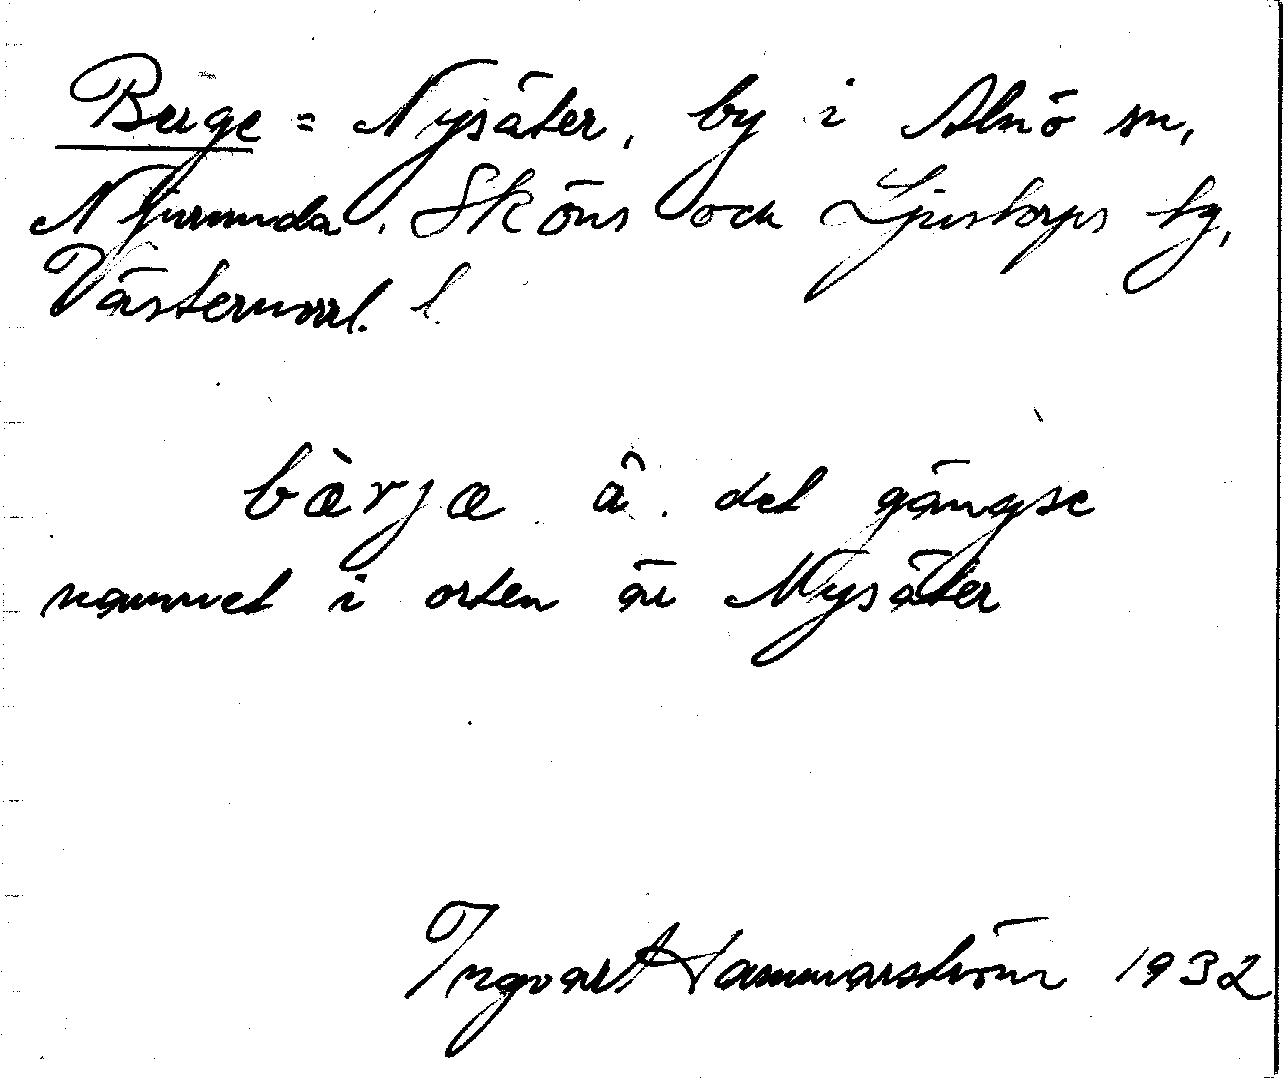 Berge = Nysäter, by i Alnö sn,
Njurunda, Sköns och Ljustorps tg,
Västernorrl. l.
bærjæ â. det gängse
namnet i orten är Nysäter
Ingvar Hammarström 1932